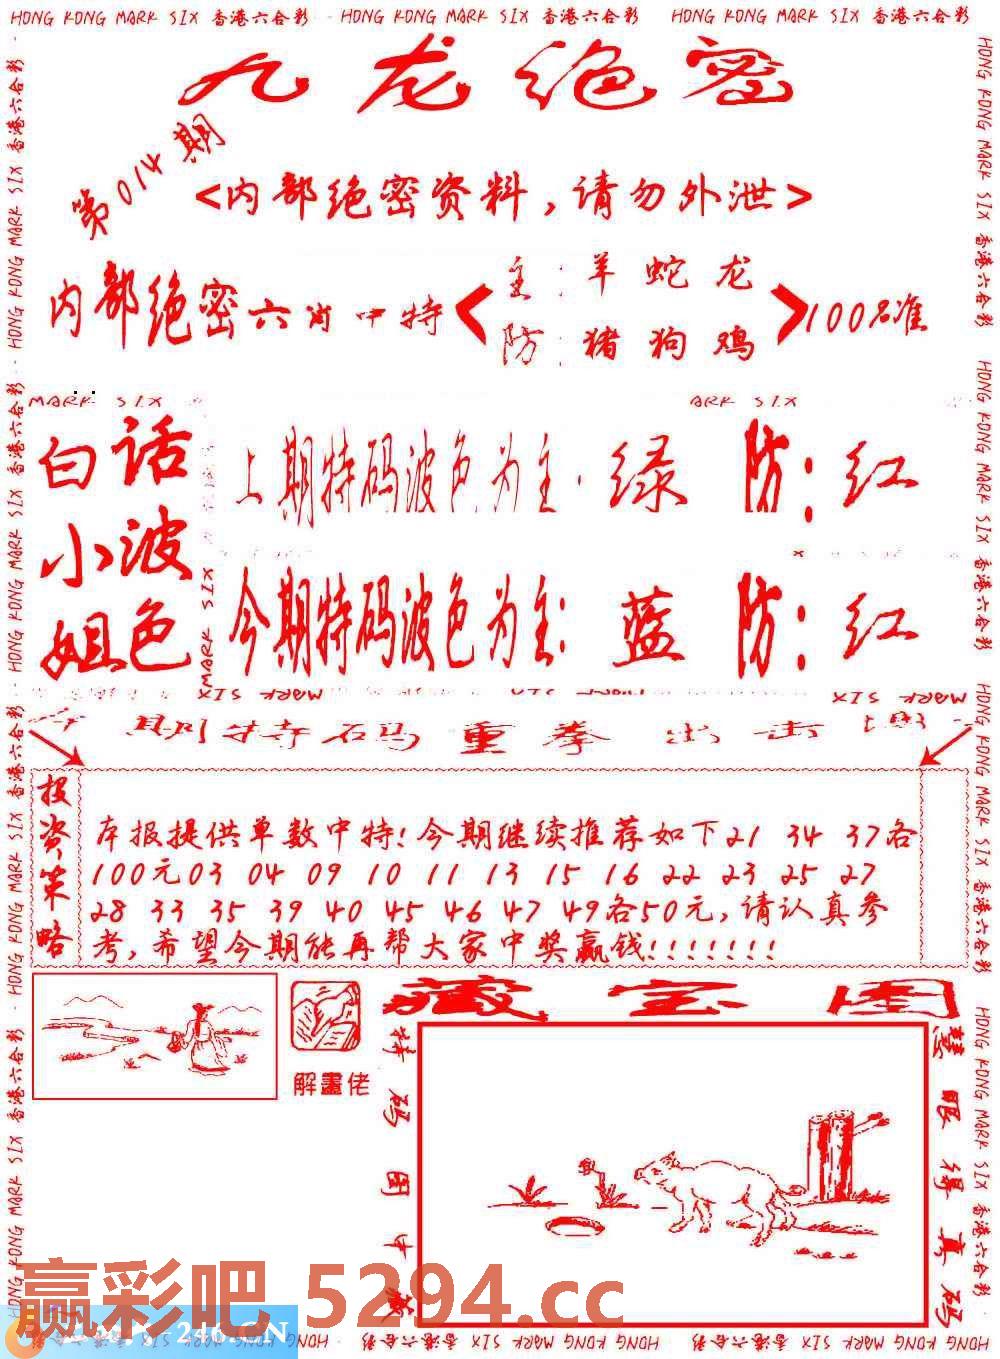 HONG KONG MARK SIX 香港六合彩 HONG KONG MARK SIX 香港六合彩 HONG KONG MARK SIX 香港六合彩
九龙绝密
第014期
<内部绝密资料,请勿外泄>
内部绝密六肖中特
主:羊 蛇 龙
防:猪 狗 鸡
100%准
MARK SIX
ARK SIX
白话
小波
姐色
上期特码波色为主: 绿 防: 红
今期特码波色为主: 蓝 防: 红
MARK SIX
期特码重拳出击
投资策略
本报提供单数中特!今期继续推荐如下21 34 37各
100元03 04 09 10 11 13 15 16 22 23 25 27
28 33 35 39 40 45 46 47 49各50元,请认真参
考,希望今期能再帮大家中奖赢钱!!!!!!!
解畫佬
藏宝图
特码图中藏
慧眼得真码
赢彩吧 5294.cc
246.CN
HONG KONG MARK SIX 香港六合彩